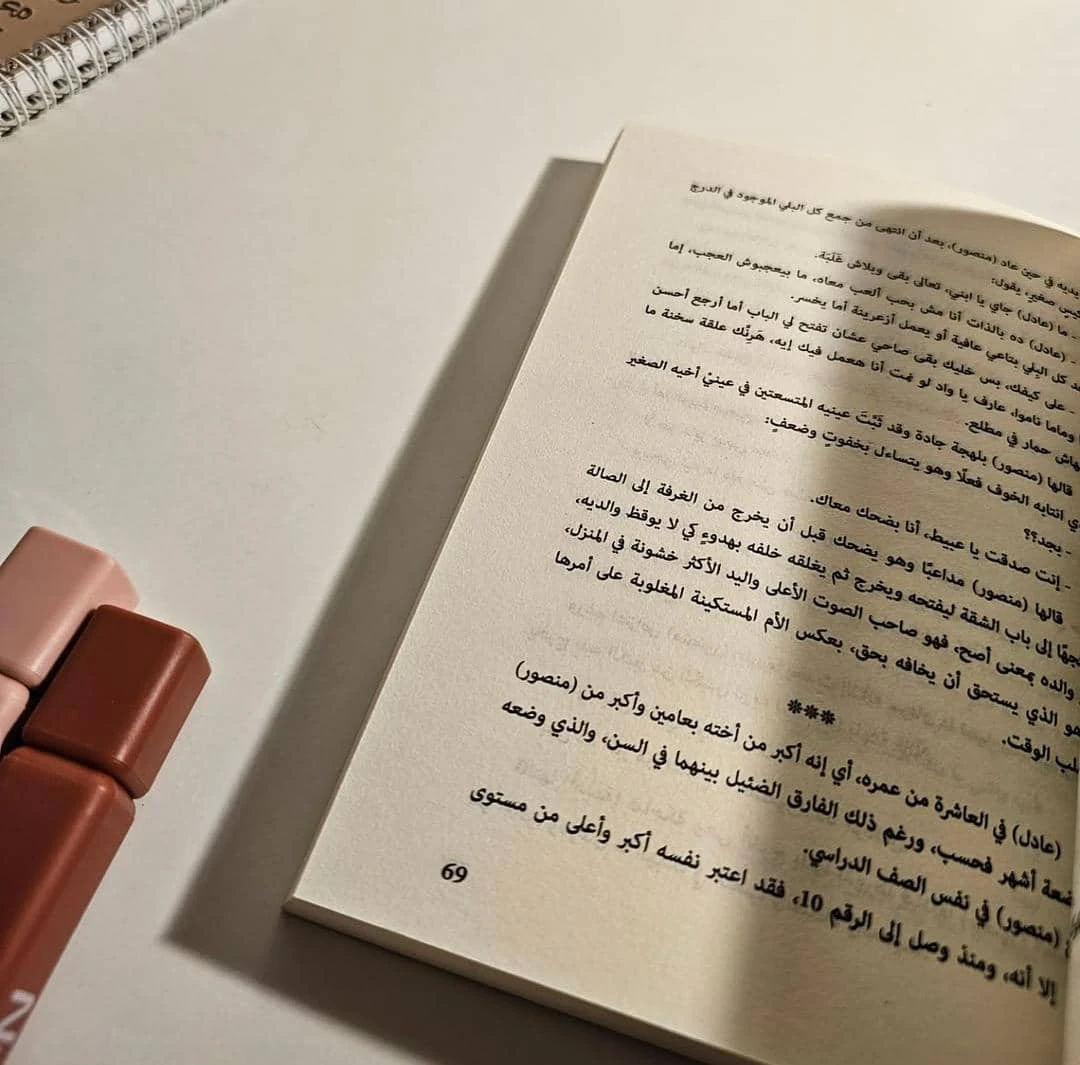 يديه في حين عاد (منصور)، بعد أن انتهى من جمع كل البلي الموجود في الدرج
كيس صغير، يقول:
- ما (عادل) جاي يا ابني، تعالى بقى وبلاش غَلَبَة.
- (عادل) ده بالذات أنا مش بحب ألعب معاه، ما بيعجبوش العجب، إما
كل البِلي بتاعي عافية أو يعمل أزعرينة أما يخسر.
- على كيفك، بس خليك بقى صاحي عشان تفتح لي الباب أما أرجع أحسن
وماما ناموا، عارف يا واد لو نِمت أنا هعمل فيك إيه، هَرِنَّك علقة سخنة ما
حمار في مطلع.
قالها (منصور) بلهجة جادة وقد ثَبَّتَ عينيه المتسعتين في عينيْ أخيه الصغير
انتابه الخوف فعلًا وهو يتساءل بخفوتٍ وضعفٍ:
- بجد؟؟
- إنت صدقت يا عبيط، أنا بضحك معاك.
قالها (منصور) مداعبًا وهو يضحك قبل أن يخرج من الغرفة إلى الصالة
إلى باب الشقة ليفتحه ويخرج ثم يغلقه خلفه بهدوءٍ كي لا يوقظ والديه،
والده بمعنى أصح، فهو صاحب الصوت الأعلى واليد الأكثر خشونة في المنزل،
هو الذي يستحق أن يخافه بحق، بعكس الأم المستكينة المغلوبة على أمرها
الوقت.
***
(عادل) في العاشرة من عمره، أي إنه أكبر من أخته بعامين وأكبر من (منصور)
أشهر فحسب، ورغم ذلك الفارق الضئيل بينهما في السن، والذي وضعه
(منصور) في نفس الصف الدراسي.
إلا أنه، ومنذ وصل إلى الرقم 10، فقد اعتبر نفسه أكبر وأعلى من مستوى
69